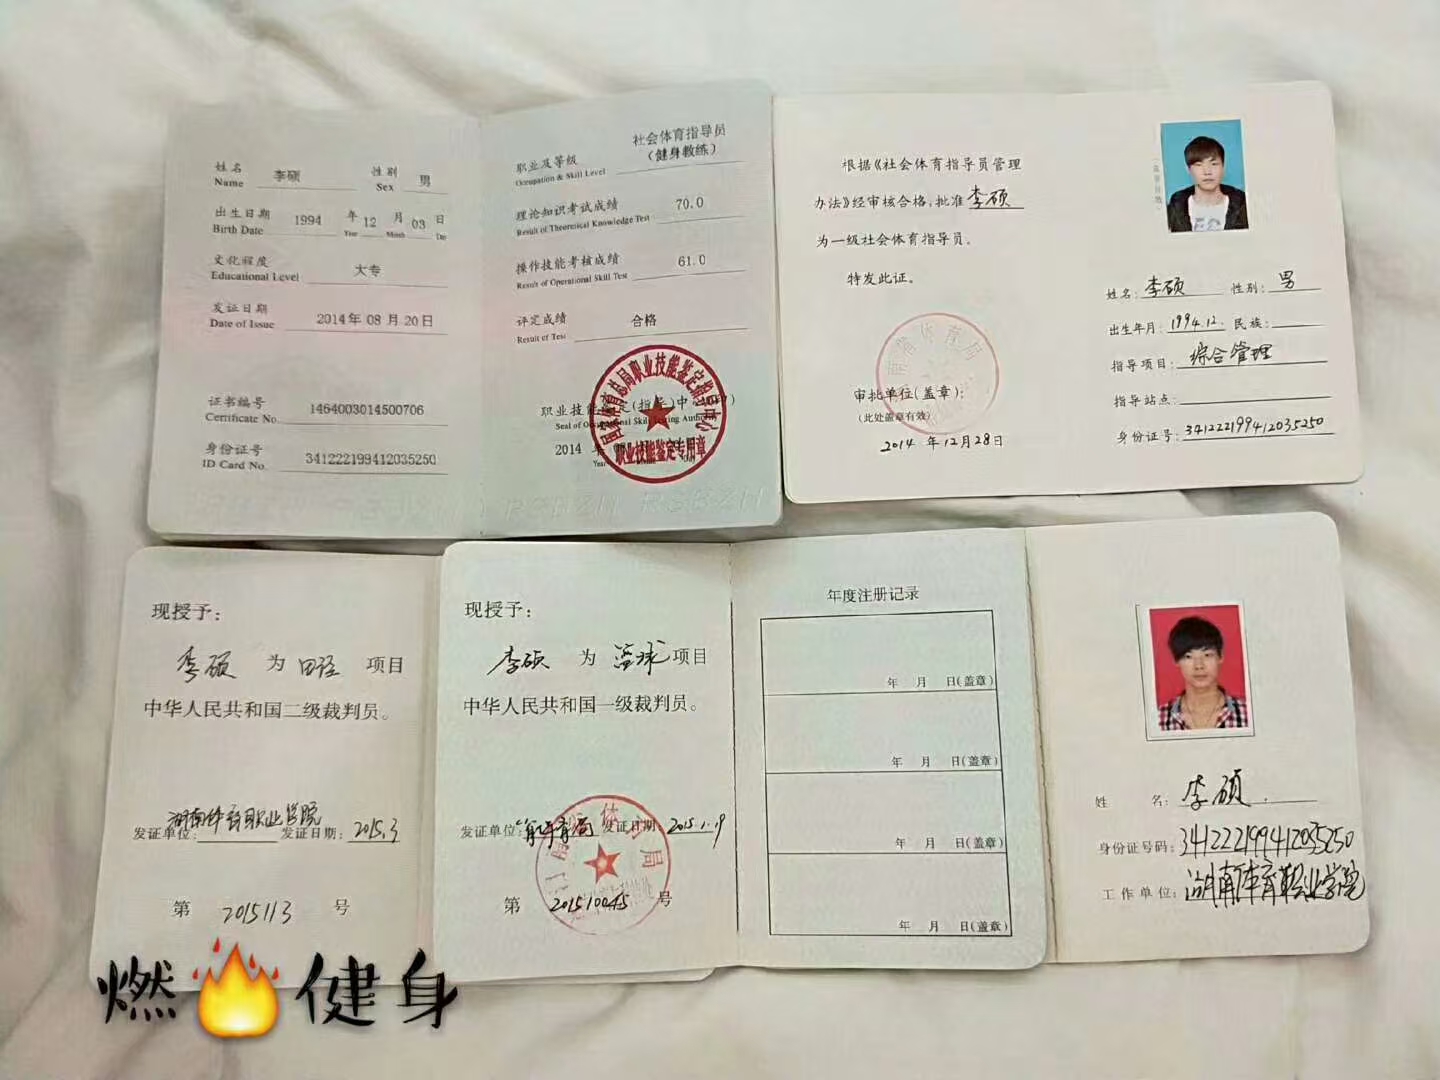 姓名 李硕 性别 男
Name Sex
出生日期 1994 年 12 月 03 日
Birth Date Year Month Day
文化程度 大专
Educational Level
发证日期 2014年08月20日
Date of Issue
证书编号 1464003014500706
Certificate No.
身份证号 341222199412035250
ID Card No.
职业及等级 社会体育指导员
Occupation & Skill Level (健身教练)
理论知识考试成绩 70.0
Result of Theoretical Knowledge Test
操作技能考核成绩 61.0
Result of Operational Skill Test
评定成绩 合格
Result of Test
职业技能鉴定(指导)中心(印)
Seal of Occupational Skill Testing Authority
2014 年
Year
国家体育总局职业技能鉴定指导中心
职业技能鉴定专用章
根据《社会体育指导员管理
办法》经审核合格,批准李硕
为一级社会体育指导员。
特发此证。
南省体育局
审批单位(盖章):
(此处盖章有效)
2014 年12月28日
姓名:李硕 性别:男
出生年月:1994.12. 民族:
指导项目:综合管理
指导站点:
身份证号:341222199412035250
现授予:
李硕 为 田径 项目
中华人民共和国二级裁判员。
湖南体育职业学院
发证单位: 发证日期:2015.3
第 2015113 号
现授予:
李硕 为 篮球 项目
中华人民共和国一级裁判员。
发证单位: 发证日期:2015.1.19
第 号
年度注册记录
年 月 日(盖章)
年 月 日(盖章)
年 月 日(盖章)
年 月 日(盖章)
姓 名:李硕
身份证号码:341222199412035250
工作单位:湖南体育职业学院
燃 健身